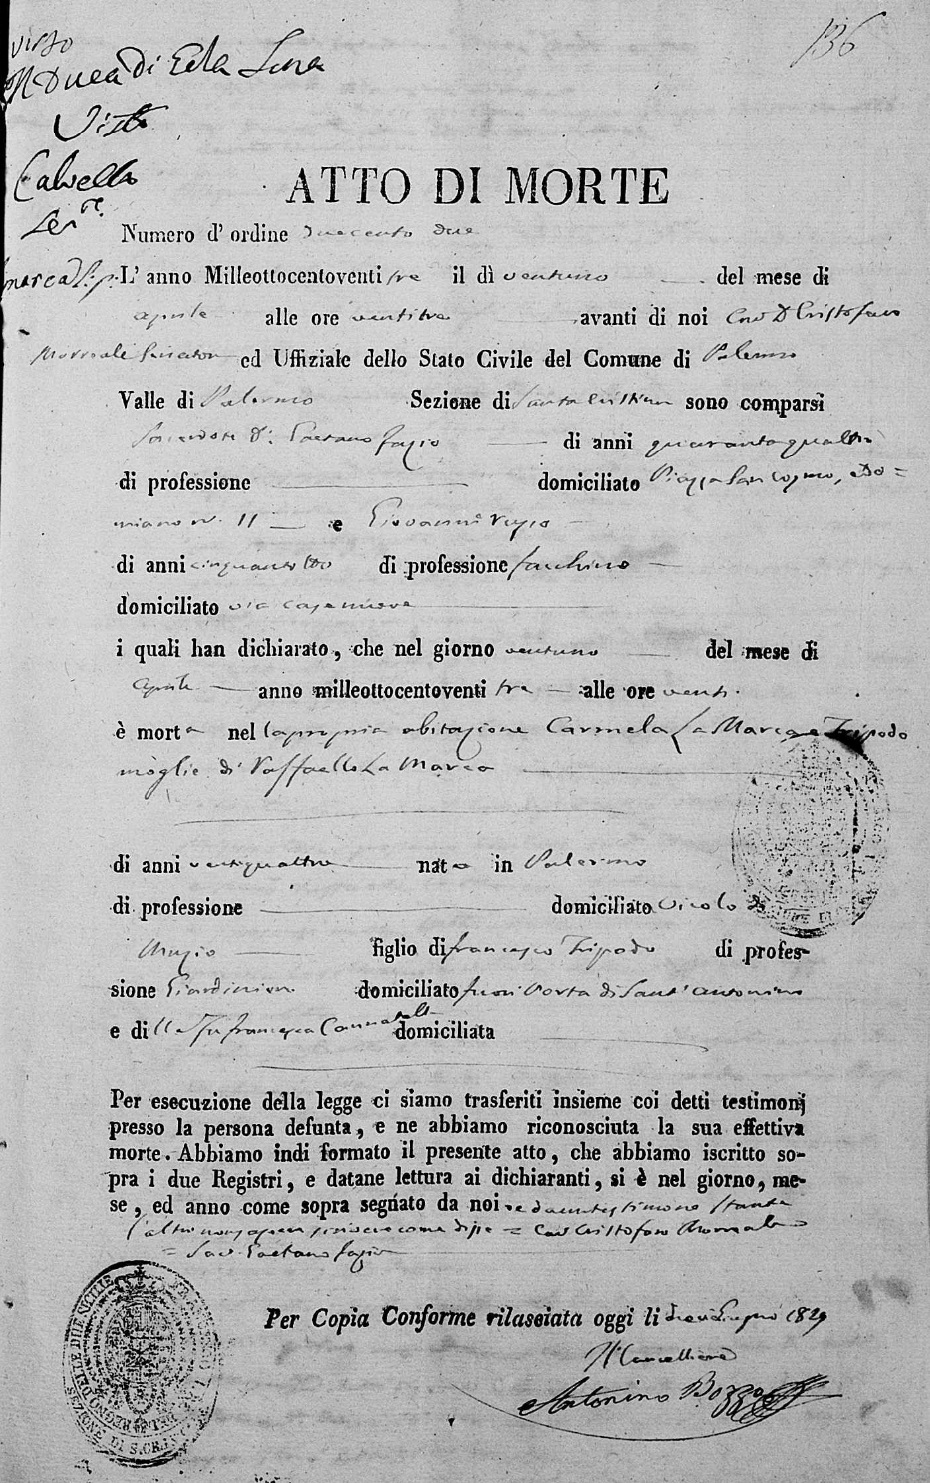 136
visto
Il Duca di
Visto
Calvello
ATTO DI MORTE
Numero d' ordine duecento due
L' anno Milleottocentoventi tre il dì ventuno del mese di
aprile alle ore ventitre avanti di noi Cav. D. Cristofaro
ed Uffiziale dello Stato Civile del Comune di Palermo
Valle di Palermo Sezione di Santa Cristina sono comparsi
Sacerdote D. Gaetano Fazio di anni quarantaquattro
di professione domiciliato Piazza San Cosmo, e Da=
miano n. 11 e Giovanni
di anni cinquantotto di professione facchino
domiciliato via casenuove
i quali han dichiarato, che nel giorno ventuno del mese di
aprile anno milleottocentoventi tre alle ore venti
è morta nel la propria abitazione Carmela La Marca e Tripodo
moglie di Raffaello La Marca
di anni ventiquattro nata in Palermo
di professione domiciliato vicolo di
Muzio figlio di Francesco Tripodo di profes-
sione Giardiniere domiciliato fuori Porta di Sant' Antonino
e di lla fu Francesca domiciliata
Per esecuzione della legge ci siamo trasferiti insieme coi detti testimonj
presso la persona defunta, e ne abbiamo riconosciuta la sua effettiva
morte. Abbiamo indi formato il presente atto, che abbiamo iscritto so-
pra i due Registri, e datane lettura ai dichiaranti, si è nel giorno, me-
se, ed anno come sopra segnato da noi e da un testimone stante
l'altro non sapere scrivere come disse = Cav. Cristofaro
= Sac. Gaetano Fazio
Per Copia Conforme rilasciata oggi li Giugno 1829
Il Cancelliere
Antonino Bozzo